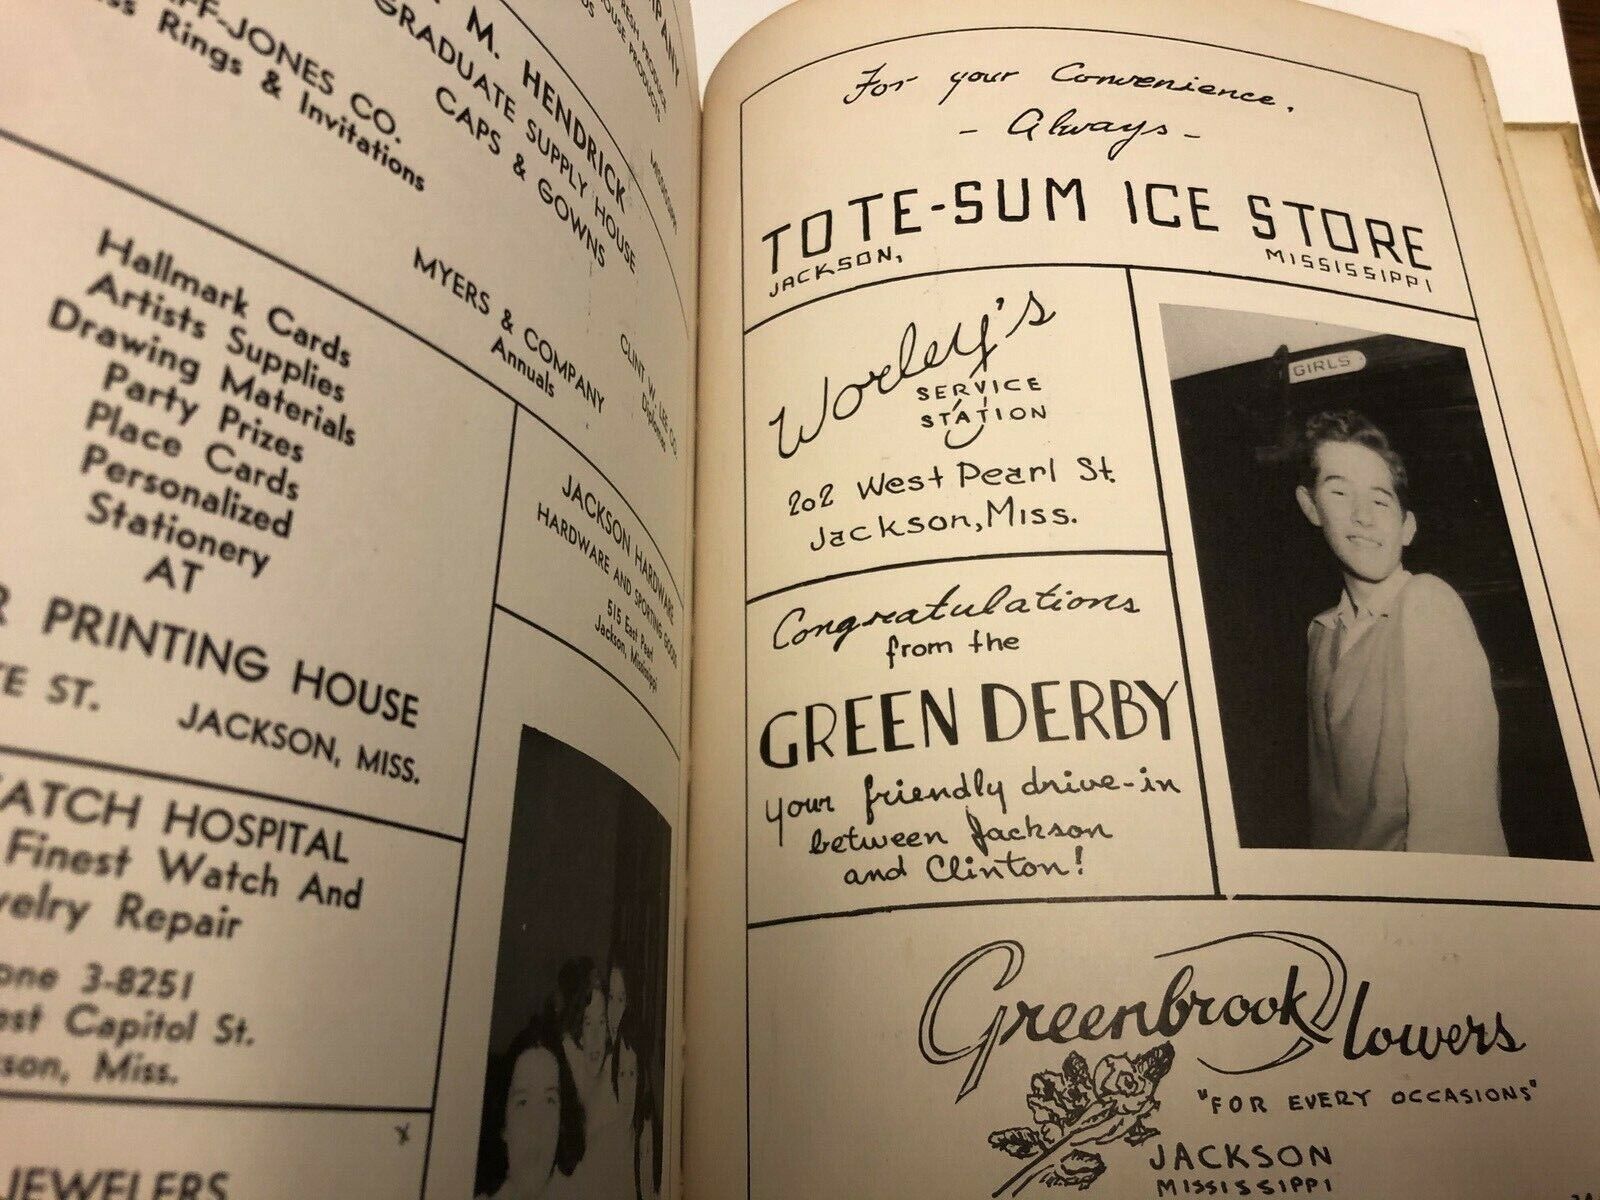 FF-JONES CO.
Rings & Invitations
M. HENDRICK
GRADUATE SUPPLY HOUSE
CAPS & GOWNS
FRESH PRODUCE
HOUSE PRODUCTS
MISSISSIPPI
MYERS & COMPANY
Annuals
CLINT W. LEE CO.
Diplomas
Hallmark Cards
Artists Supplies
Drawing Materials
Party Prizes
Place Cards
Personalized
Stationery
AT
R PRINTING HOUSE
TE ST. JACKSON, MISS.
JACKSON HARDWARE
HARDWARE AND SPORTING GOODS
515 East Pearl
Jackson, Mississippi
ATCH HOSPITAL
Finest Watch And
welry Repair
one 3-8251
est Capitol St.
son, Miss.
x
JEWELERS
For your Convenience,
- Always -
TOTE-SUM ICE STORE
JACKSON, MISSISSIPPI
Worley's
SERVICE
STATION
202 West Pearl St.
Jackson, Miss.
GIRLS
Congratulations
from the
GREEN DERBY
your friendly drive-in
between Jackson
and Clinton!
Greenbrook Flowers
"FOR EVERY OCCASIONS"
JACKSON
MISSISSIPPI